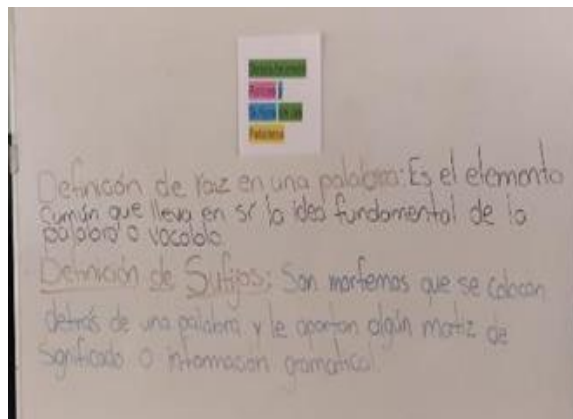 Raíces y
Sufijos en las
Palabras
Definición de raíz en una palabra: Es el elemento
común que lleva en sí la idea fundamental de la
palabra o vocablo.
Definición de Sufijos: Son morfemas que se colocan
detrás de una palabra y le aportan algún matiz de
significado o información gramatical.